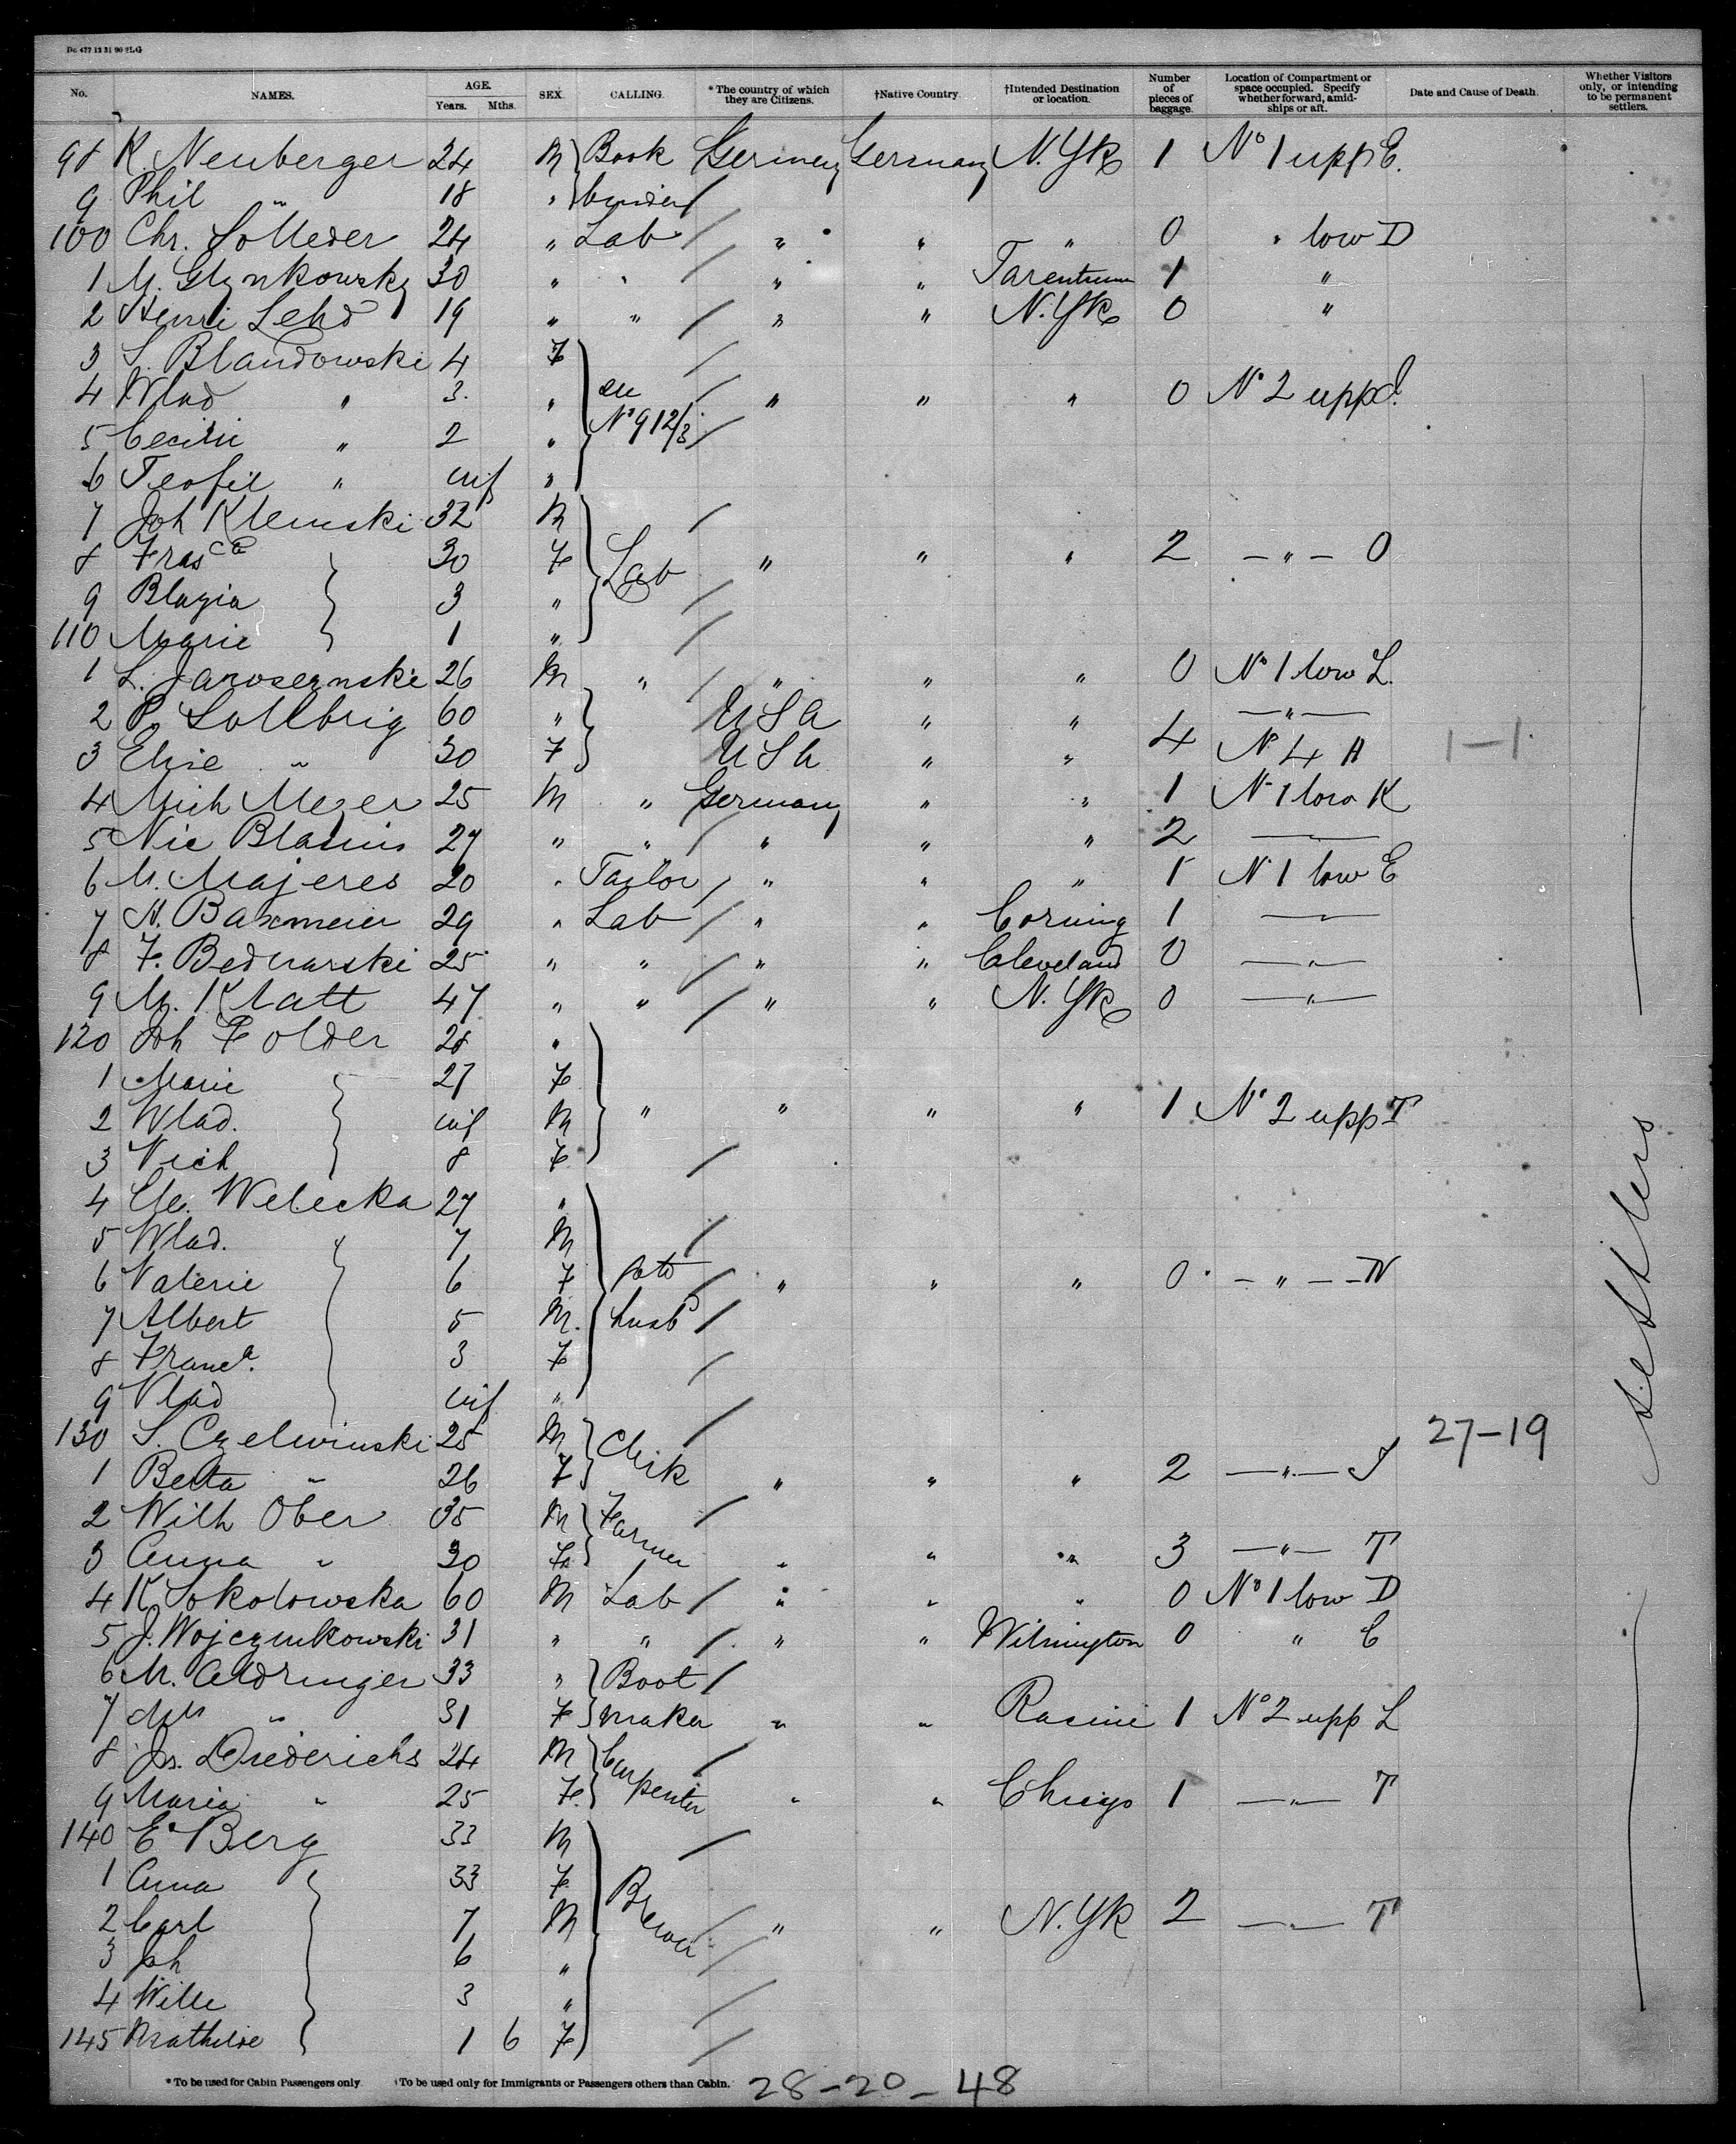 No. NAMES. AGE. Years. Mths. SEX. CALLING. *The country of which they are Citizens. †Native Country. †Intended Destination or location. Number of pieces of baggage. Location of Compartment or space occupied. Specify whether forward, amidships or aft. Date and Cause of Death. Whether Visitors only, or intending to be permanent settlers.
98 K. Neuberger 24 M Book Germany Germany N. Yk 1 No 1 upp E.
9 Phil " 18 " binder
100 Chr. Sölleder 24 " Lab " " " 0 " low D
1 M. Glynkowsky 30 " " " " Tarentum 1 "
2 Henri 19 " " " " N. Yk 0 "
3 S. Blandowski 4 F
4 Wlad " 3 " see No 912/3 " " " 0 No 2 upp
5 " 2 "
6 Teofil " inf "
7 Joh Klemski 32 M
8 30 F Lab " " " 2 — " — O
9 Blazia 3 "
110 Marie 1 "
1 L. 26 M " " " " 0 No 1 low L.
2 P. Sollbrig 60 " USA " " — " —
3 Elise " 30 F USA " " 4 No 4 H 1-1
4 Mich Meyer 25 M " Germany " " 1 No 1 low K
5 Nic Blasius 27 " " " " " 2 — " —
6 M. Majeres 20 " Tailor " " " 1 No 1 low E
7 H. Baxmeier 29 " Lab " " Corning 1 — " —
8 F. Bednarski 25 " " " " Cleveland 0 — " —
9 M. Klatt 47 " " " " N. Yk 0 — " —
120 Joh Folder 28 "
1 Marie 27 F
2 Wlad. inf M " " " " 1 No 2 upp T
3 8 F
4 Welecka 27 "
5 Wlad. " 7 M
6 Valerie 6 F to " " " 0 — " — N
7 Albert 5 M. husbd
8 Franca. 3 F
9 Vlad inf "
130 S. Czelwinski 25 M Clerk 27-19
1 Berta " 26 F " " " 2 — " — T
2 Wilh Ober 35 M Farmer
3 Anna " 30 F " " " 3 — " — T
4 K. Sokolowska 60 M Lab " " " 0 No 1 low D
5 J. Wojczinkowski 31 " " " " Wilmington 0 " C
6 M. Aldringer 33 " Boot
7 " 31 F maker " " Racine 1 No 2 upp L
8 Js. Diederichs 24 M Carpenter
9 Maria " 25 F. " " Chicago 1 — " — T
140 E. Berg 33 M
1 Anna 33 F Brewer
2 Carl 7 M " " N. Yk 2 — " — T
3 Joh 6 "
4 Wille 3 "
145 Mathilde 1 6 F
settlers
*To be used for Cabin Passengers only. †To be used only for Immigrants or Passengers others than Cabin. 28-20-48